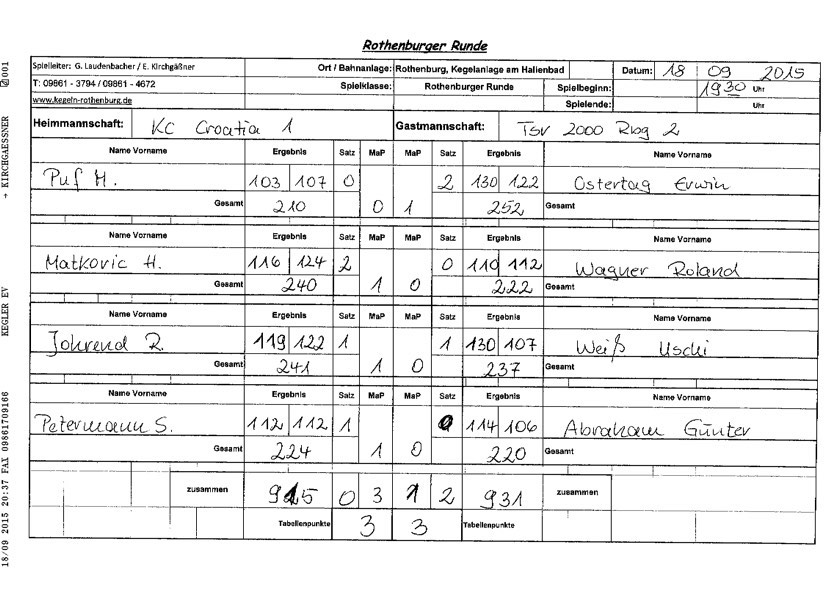 Rothenburger Runde
Spielleiter: G. Laudenbacher / E. Kirchgäßner Ort / Bahnanlage: Rothenburg, Kegelanlage am Hallenbad Datum: 18 09 2015
T: 09861 - 3794 / 09861 - 4672 Spielklasse: Rothenburger Runde Spielbeginn: 19 30 Uhr
www.kegeln-rothenburg.de Spielende: Uhr
Heimmannschaft: KC Croatia 1 Gastmannschaft: TSV 2000 Rbg 2
Name Vorname Ergebnis Satz MaP MaP Satz Ergebnis Name Vorname
Puf H. 103 107 0 2 130 122 Ostertag Erwin
Gesamt 210 0 1 252 Gesamt
Name Vorname Ergebnis Satz MaP MaP Satz Ergebnis Name Vorname
Matkovic H. 116 124 2 0 110 112 Wagner Roland
Gesamt 240 1 0 222 Gesamt
Name Vorname Ergebnis Satz MaP MaP Satz Ergebnis Name Vorname
Johrend R. 119 122 1 1 130 107 Weiß Uschi
Gesamt 241 1 0 237 Gesamt
Name Vorname Ergebnis Satz MaP MaP Satz Ergebnis Name Vorname
Petermann S. 112 112 1 114 106 Abraham Günter
Gesamt 224 1 0 220 Gesamt
zusammen 915 0 3 1 2 931 zusammen
Tabellenpunkte 3 3 Tabellenpunkte
18/09 2015 20:37 FAX 09861709166 KEGLER EV → KIRCHGAESSNER 001